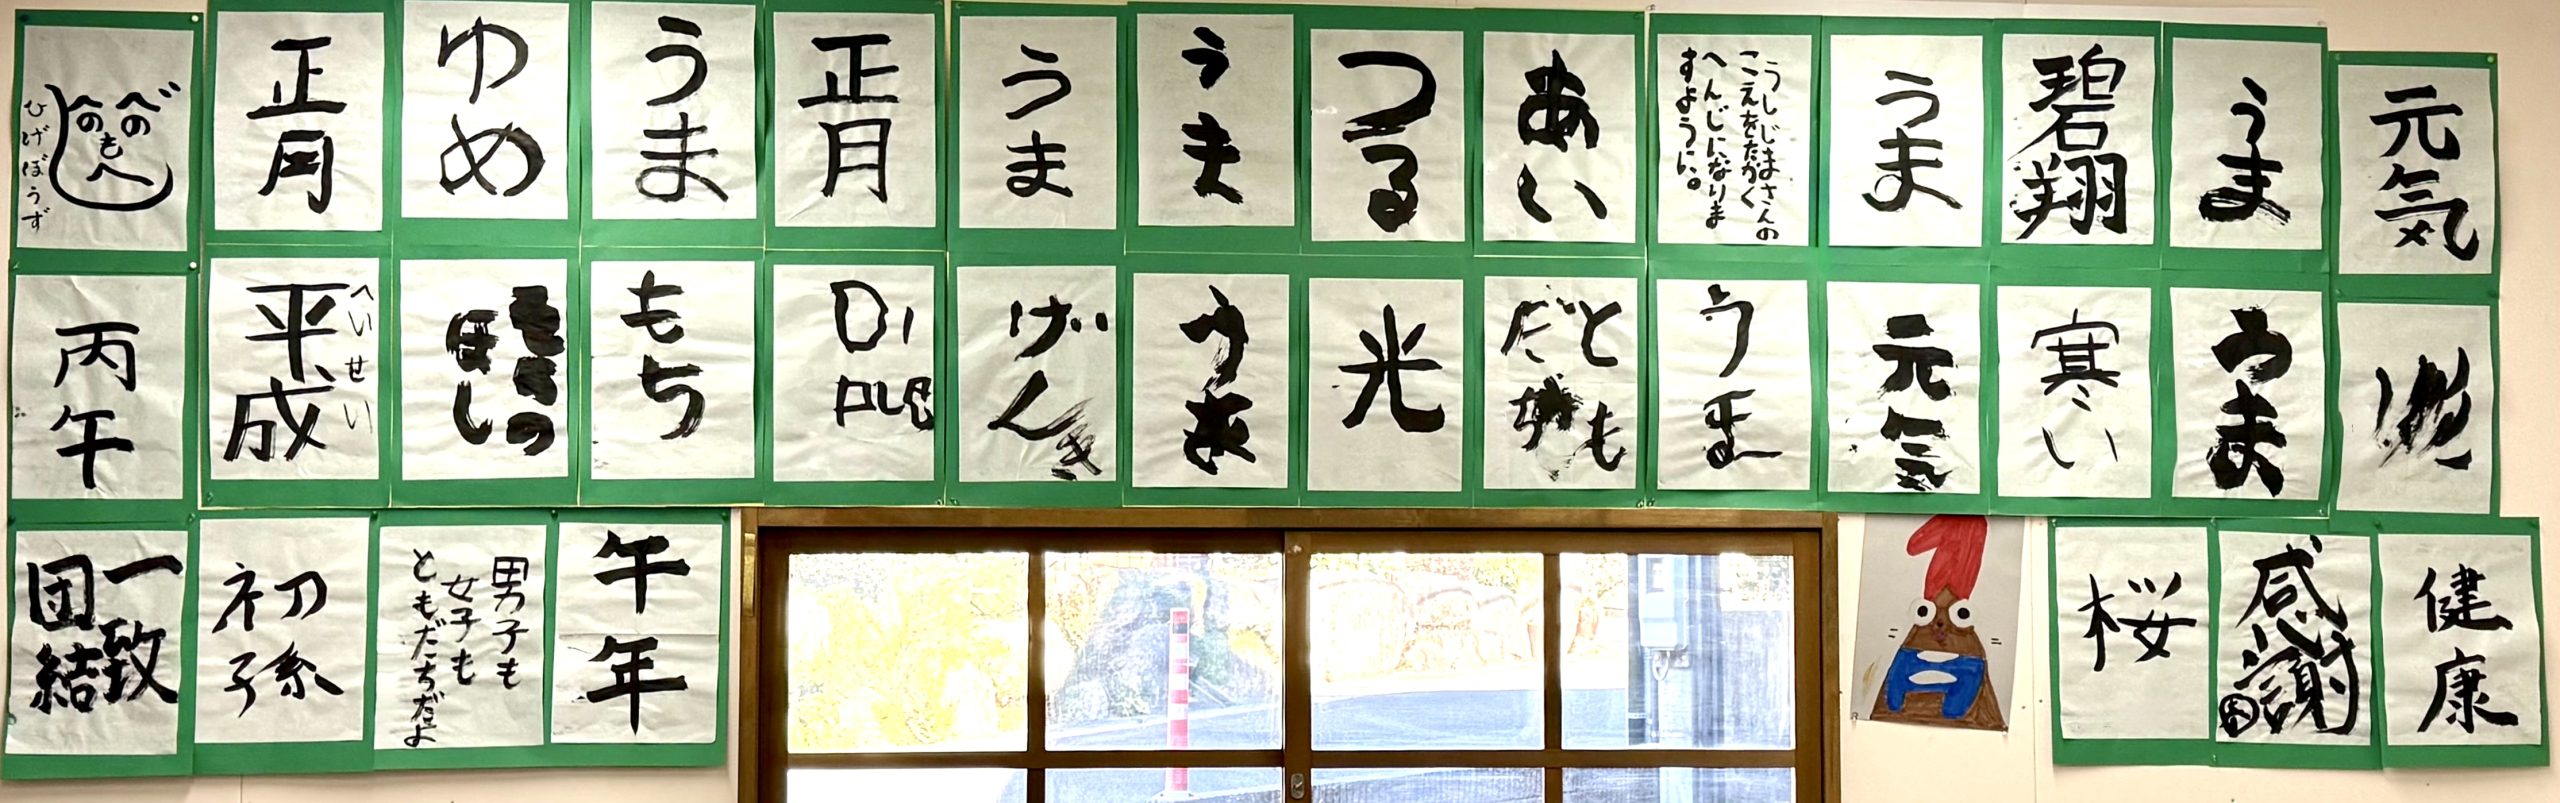 へのへのもへじ
ひげぼうず
正月
ゆめ
うま
正月
うま
うま
つる
あい
うしじまさんの
こえをたかく
へんじになりま
すように。
うま
碧翔
うま
元気
丙午
平成
へいせい
ほし
もち
げんき
うま
光
ともだち
うま
元気
寒い
うま
一致
団結
初孫
男子も
女子も
ともだちだよ
午年
桜
感謝
健康